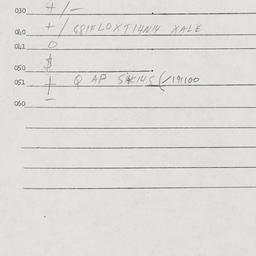 030 + / -
040 + / G81FLOXT14N14 XALE
041 0
050 $
051 + Q AP S*K14S (/191100
060 -